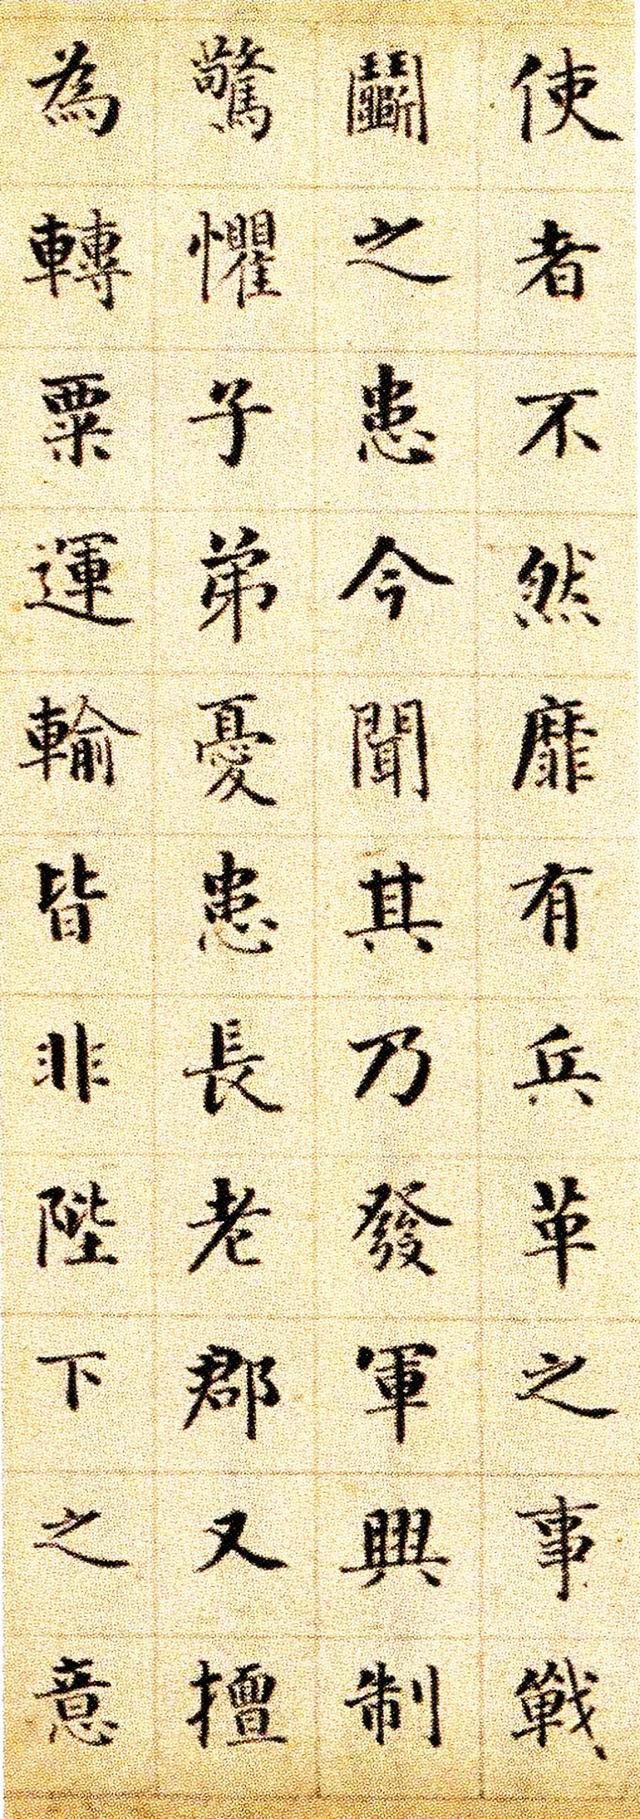 使者不然靡有兵革之事戰
鬭之患今聞其乃發軍興制
驚懼子弟憂患長老郡又擅
為轉粟運輸皆非陛下之意